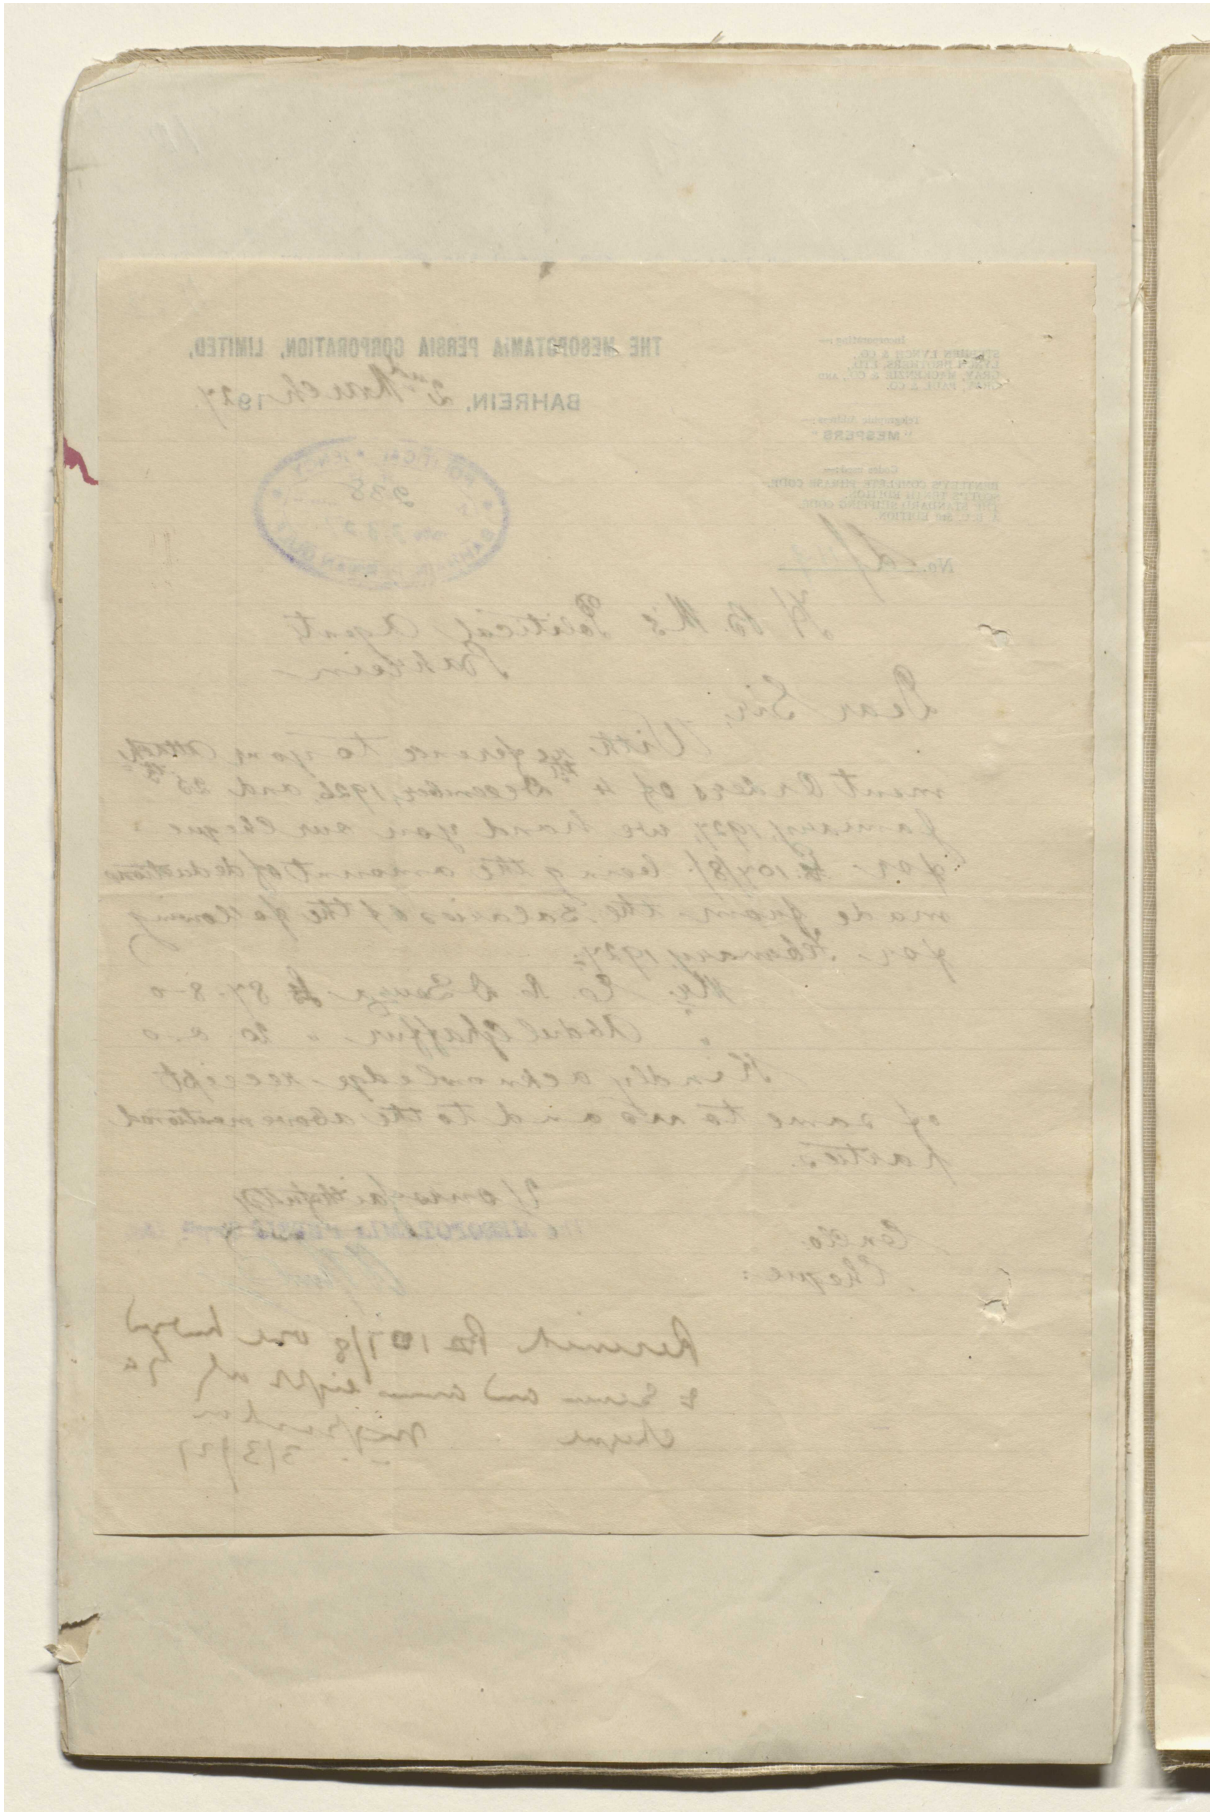 THE MESOPOTAMIA PERSIA CORPORATION, LIMITED,
BAHREIN, 2nd March, 1927.
Incorporating:—
STEPHEN LYNCH & CO.
LYNCH BROTHERS, LTD.
GRAY, MACKENZIE & CO., AND
GRAY, PAUL & CO.
Telegraphic Address:—
"MESPERS"
Codes used:—
BENTLEY'S COMPLETE PHRASE CODE.
SCOTT'S TENTH EDITION.
THE STANDARD SHIPPING CODE.
A.B.C. 5th EDITION
POLITICAL AGENCY
238
BAHREIN, PERSIAN GULF
No.
H. B. M's Political Agent
Bahrein
Dear Sir,
With reference to your attach
ment Orders of 4th December, 1926, and 25th
January, 1927, we hand you our cheque
for Rs.107/8/- being the amount of deductions
made from the salaries of the following
for February, 1927:-
Mr. C. R. D'Souza Rs 87-8-0
" Abdul Ghaffur " 20-0-0
Kindly acknowledge receipt
of same to us and to the above mentioned
parties.
Yours faithfully
THE MESOPOTAMIA PERSIA
Enclo.
Cheque:
Received Rs 107/8 one hundred
& seven and annas eight only by a
cheque
3/3/27